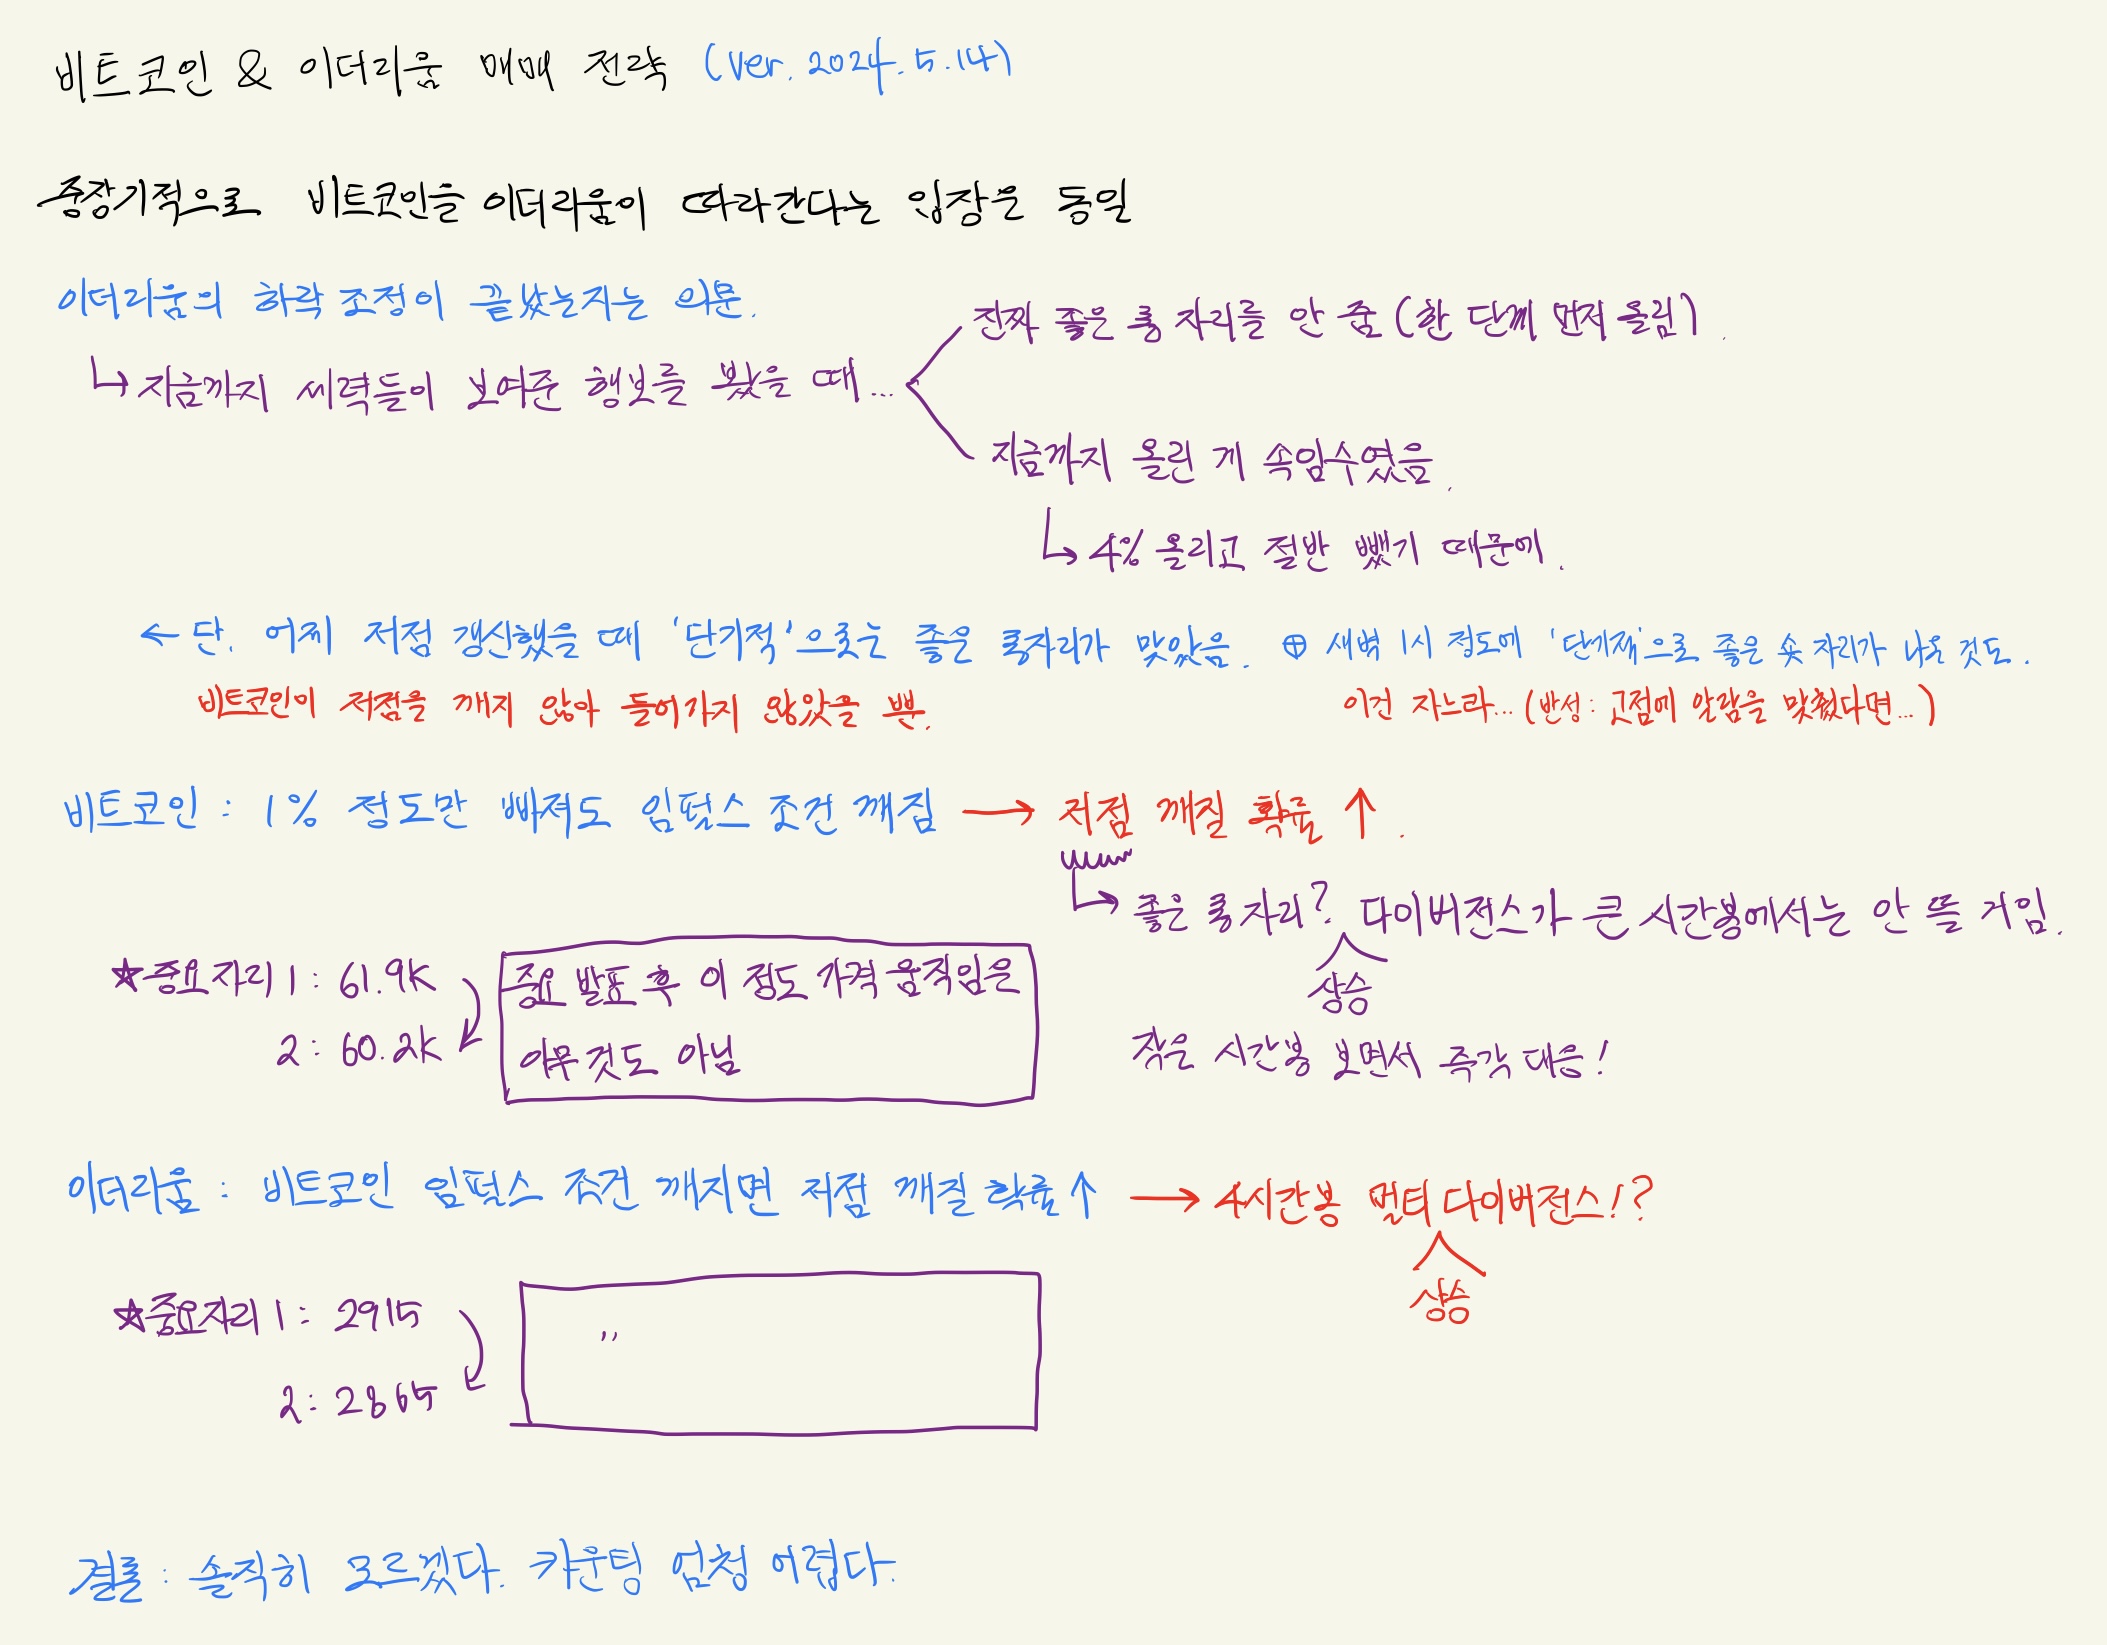 비트코인 & 이더리움 매매 전략 (Ver. 2024.5.14)
중장기적으로 비트코인을 이더리움이 따라간다는 입장은 동일
이더리움의 하락 조정이 끝났는지는 의문.
↳ 지금까지 세력들이 보여준 행보를 봤을 때...
진짜 좋은 롱 자리를 안 줌 (한 단계 먼저 올림).
지금까지 올린 게 속임수였음.
↳ 4% 올리고 절반 뺐기 때문에.
← 단, 어제 저점 갱신했을 때 '단기적'으로는 좋은 롱자리가 맞았음. ⊕ 새벽 1시 정도에 '단기적'으로 좋은 숏 자리가 나온 것도.
비트코인이 저점을 깨지 않아 들어가지 않았을 뿐.
이건 자느라... (반성: 고점에 알람을 맞췄다면...)
비트코인 : 1% 정도만 빠져도 임펄스 조건 깨짐 → 저점 깨질 확률 ↑.
↳ 좋은 롱 자리? 다이버전스가 큰 시간봉에서는 안 뜰 거임.
상승
작은 시간봉 보면서 즉각 대응!
☆중요자리 1: 61.9K
2: 60.2K
중요 발표 후 이 정도 가격 움직임은
아무것도 아님
이더리움 : 비트코인 임펄스 조건 깨지면 저점 깨질 확률↑ → 4시간봉 멀티 다이버전스!?
상승
☆중요자리 1: 2915
2: 2865
〃
결론 : 솔직히 모르겠다. 카운팅 엄청 어렵다.